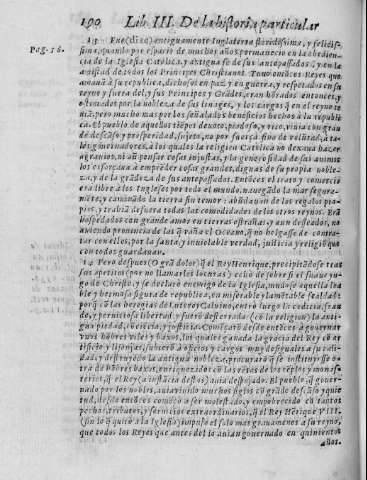 190 Lib. III. De la historia particular
Pag. 16.
13 Fue (dize) antiguamente Inglaterra floridissima, y felicissi-
sima, quando por espacio de muchos años permanecio en la obedien-
cia de la Iglesia Catolica, y antigua fe de sus antepassados, y en la
amistad de todos los Principes Christianos. Tenia entonces Reyes que
amauā à su republica, dichosos en paz, y en guerra, y respetados en su
reyno y fuera del, y sus Principes y Grādes, eran hōrados entonces, y
estimados por la nobleza de sus linages, y los cargos q̄ en el reyno te
niā, pero mucho mas por los señalados beneficios hechos à la republi
ca. El pueblo de aquellos tiēpos deuoto, piadoso, y rico, viuia con grā
de descāso y prosperidad, sujeto, no por fuerça sino de volūtad, à ta-
les gouernadores, à los quales la religion Catolica no dexaua hazer
agrauios, ni aū pensar cosas injustas, y la generosidad de sus animos
los esforçaua à emprēder cosas grandes, dignas de su propia noble-
za, y de la grādeza de sus antepassados. Entōces el trato y comercio
era libre à los Ingleses por todo el mundo, nauegādo la mar segura-
mēte, y caminādo la tierra sin temor: abūdauan de los regalos pro-
pios, y trahiā de fuera todas las comodidades de los otros reynos. Erā
hospedados con grande amor en tierras estrañas, y aun deseados, no
auiendo prouincia de las q̄ vaña el Oceano, q̄ no holgasse de contra-
tar con ellos, por la santa y inuiolable verdad, justicia y religiō que
con todos guardauan.
14 Pero despues (O grā dolor) q̄ el Rey Henrique, precipitādose tras
sus apetitos (por no llamarlos locuras) echò de sobre si el suaue yu-
go de Christo, y se declarò enemigo de la Iglesia, mudose aquella no
ble y hermosa figura de republica, en miserable y lamētable fealdad:
porq̄ cō las heregias de Lutero y Caluino, entrò luego la codicia, fraude
, y perniciosa libertad, y fuerō desterradas (cō la religion) la anti-
gua piedad, inocēcia, y justicia. Començarō desde entōces à gouernar
vnos hōbres viles y baxos, los quales ganada la gracia del Rey cō ar
tificio y lisonjas, subierō à oficios y cargos muy desiguales à su cali-
dad, y destruyēdo la antigua nobleza, procurarō q̄ se instituyesse o-
tra de hōbres baxos, enriquezidos cō las rētas de los tēplos y monas-
terios, q̄ el Rey (a instācia destos) auia despojado. El pueblo, q̄ gouer-
nado por los nobles, auia viuido muchos siglos con grāde descāso y quie-
tud, desde entōces començò a ser molestado, y empobrecido cō tantos
pechos, tributos, y seruicios extraordinarios, q̄ el Rey Hērique VIII.
(sin lo q̄ quitò a la Iglesia) impuso el solo mas grauamenes a su reyno,
que todos los Reyes que antes del lo auian gouernado en quinientos
años.